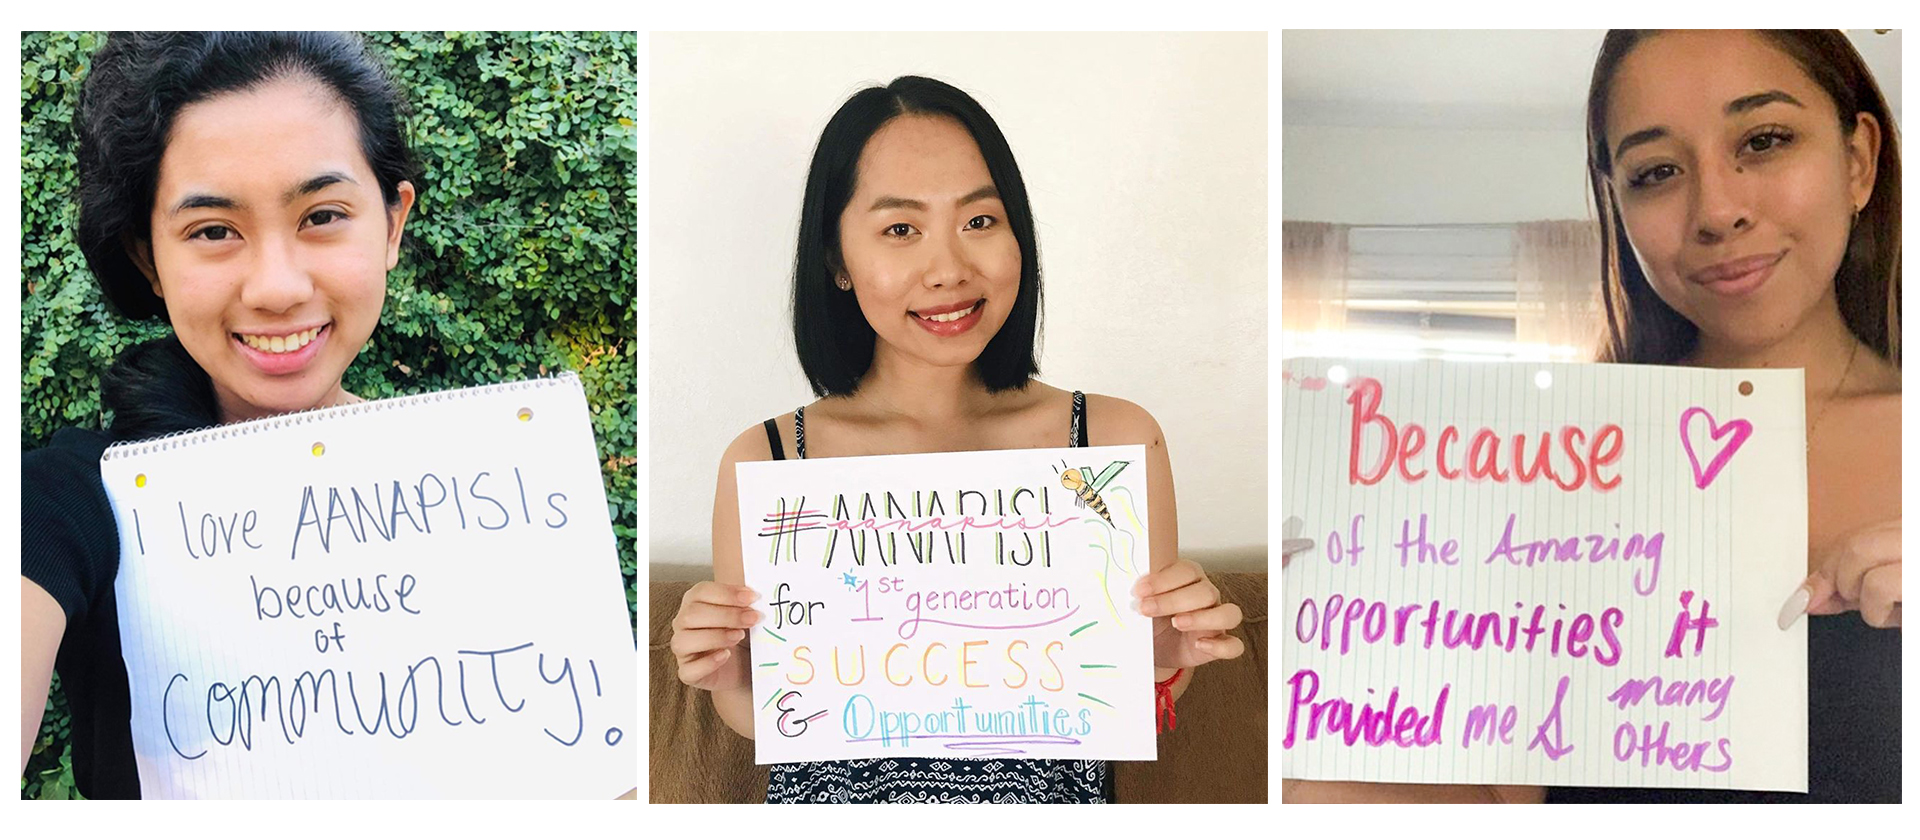 I love AANAPISIs
because
of
COMMUNITY!
#AANAPISI
aanapisi
for 1st generation
SUCCESS
& Opportunities
Because
of the Amazing
opportunities it
Provided me & many
Others